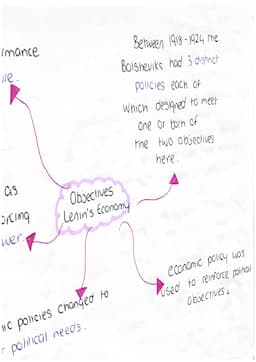 rmance
Between 1918-1924 the
Bolsheviks had 3 distinct
policies each of
which designed to meet
one or both of
the two objectives
here.
as
orcing
wer.
Objectives
Lenin's Economy
economic policy was
used to reinforce political
objectives.
ic policies changed to
r political needs.